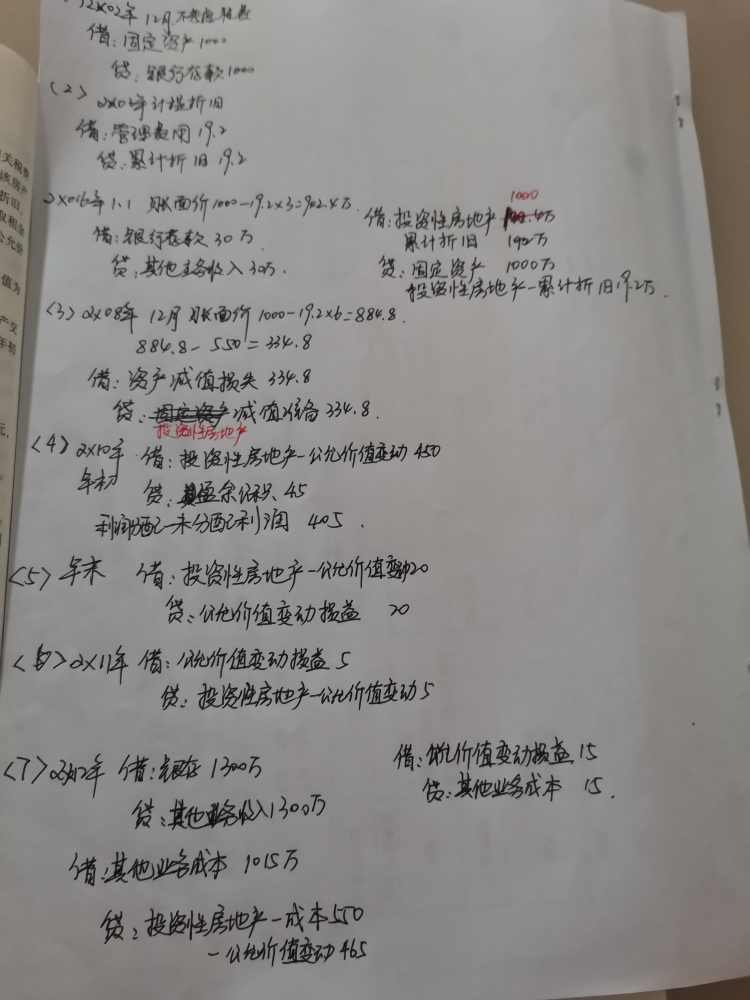 12×02年 12月
借:固定资产1000
贷:银行存款1000
(2)
2×03年计提折旧
借:管理费用19.2
贷:累计折旧 19.2
年1.1 账面价1000-19.2×3=902.4万
借:银行存款30万
贷:其他业务收入30万.
1000
借:投资性房地产
累计折旧 192万
贷:固定资产 1000万
投资性房地产-累计折旧19.2万.
(3) 2×08年 12月 账面价1000-19.2×6=884.8.
884.8-550=334.8
借:资产减值损失334.8
贷: 减值准备334.8.
投资性房地产
<4> 2×10年 借:投资性房地产-公允价值变动450
年初 贷:盈余公积 45
利润分配-未分配利润 405.
<5> 年末 借:投资性房地产-公允价值变动20
贷:公允价值变动损益 20
2×11年 借:公允价值变动损益5
贷:投资性房地产-公允价值变动5
<7> 2×12年 借:银存 1300万
贷:其他业务收入1300万
借:公允价值变动损益15
贷:其他业务成本 15.
借:其他业务成本 1015万
贷:投资性房地产-成本550
-公允价值变动465